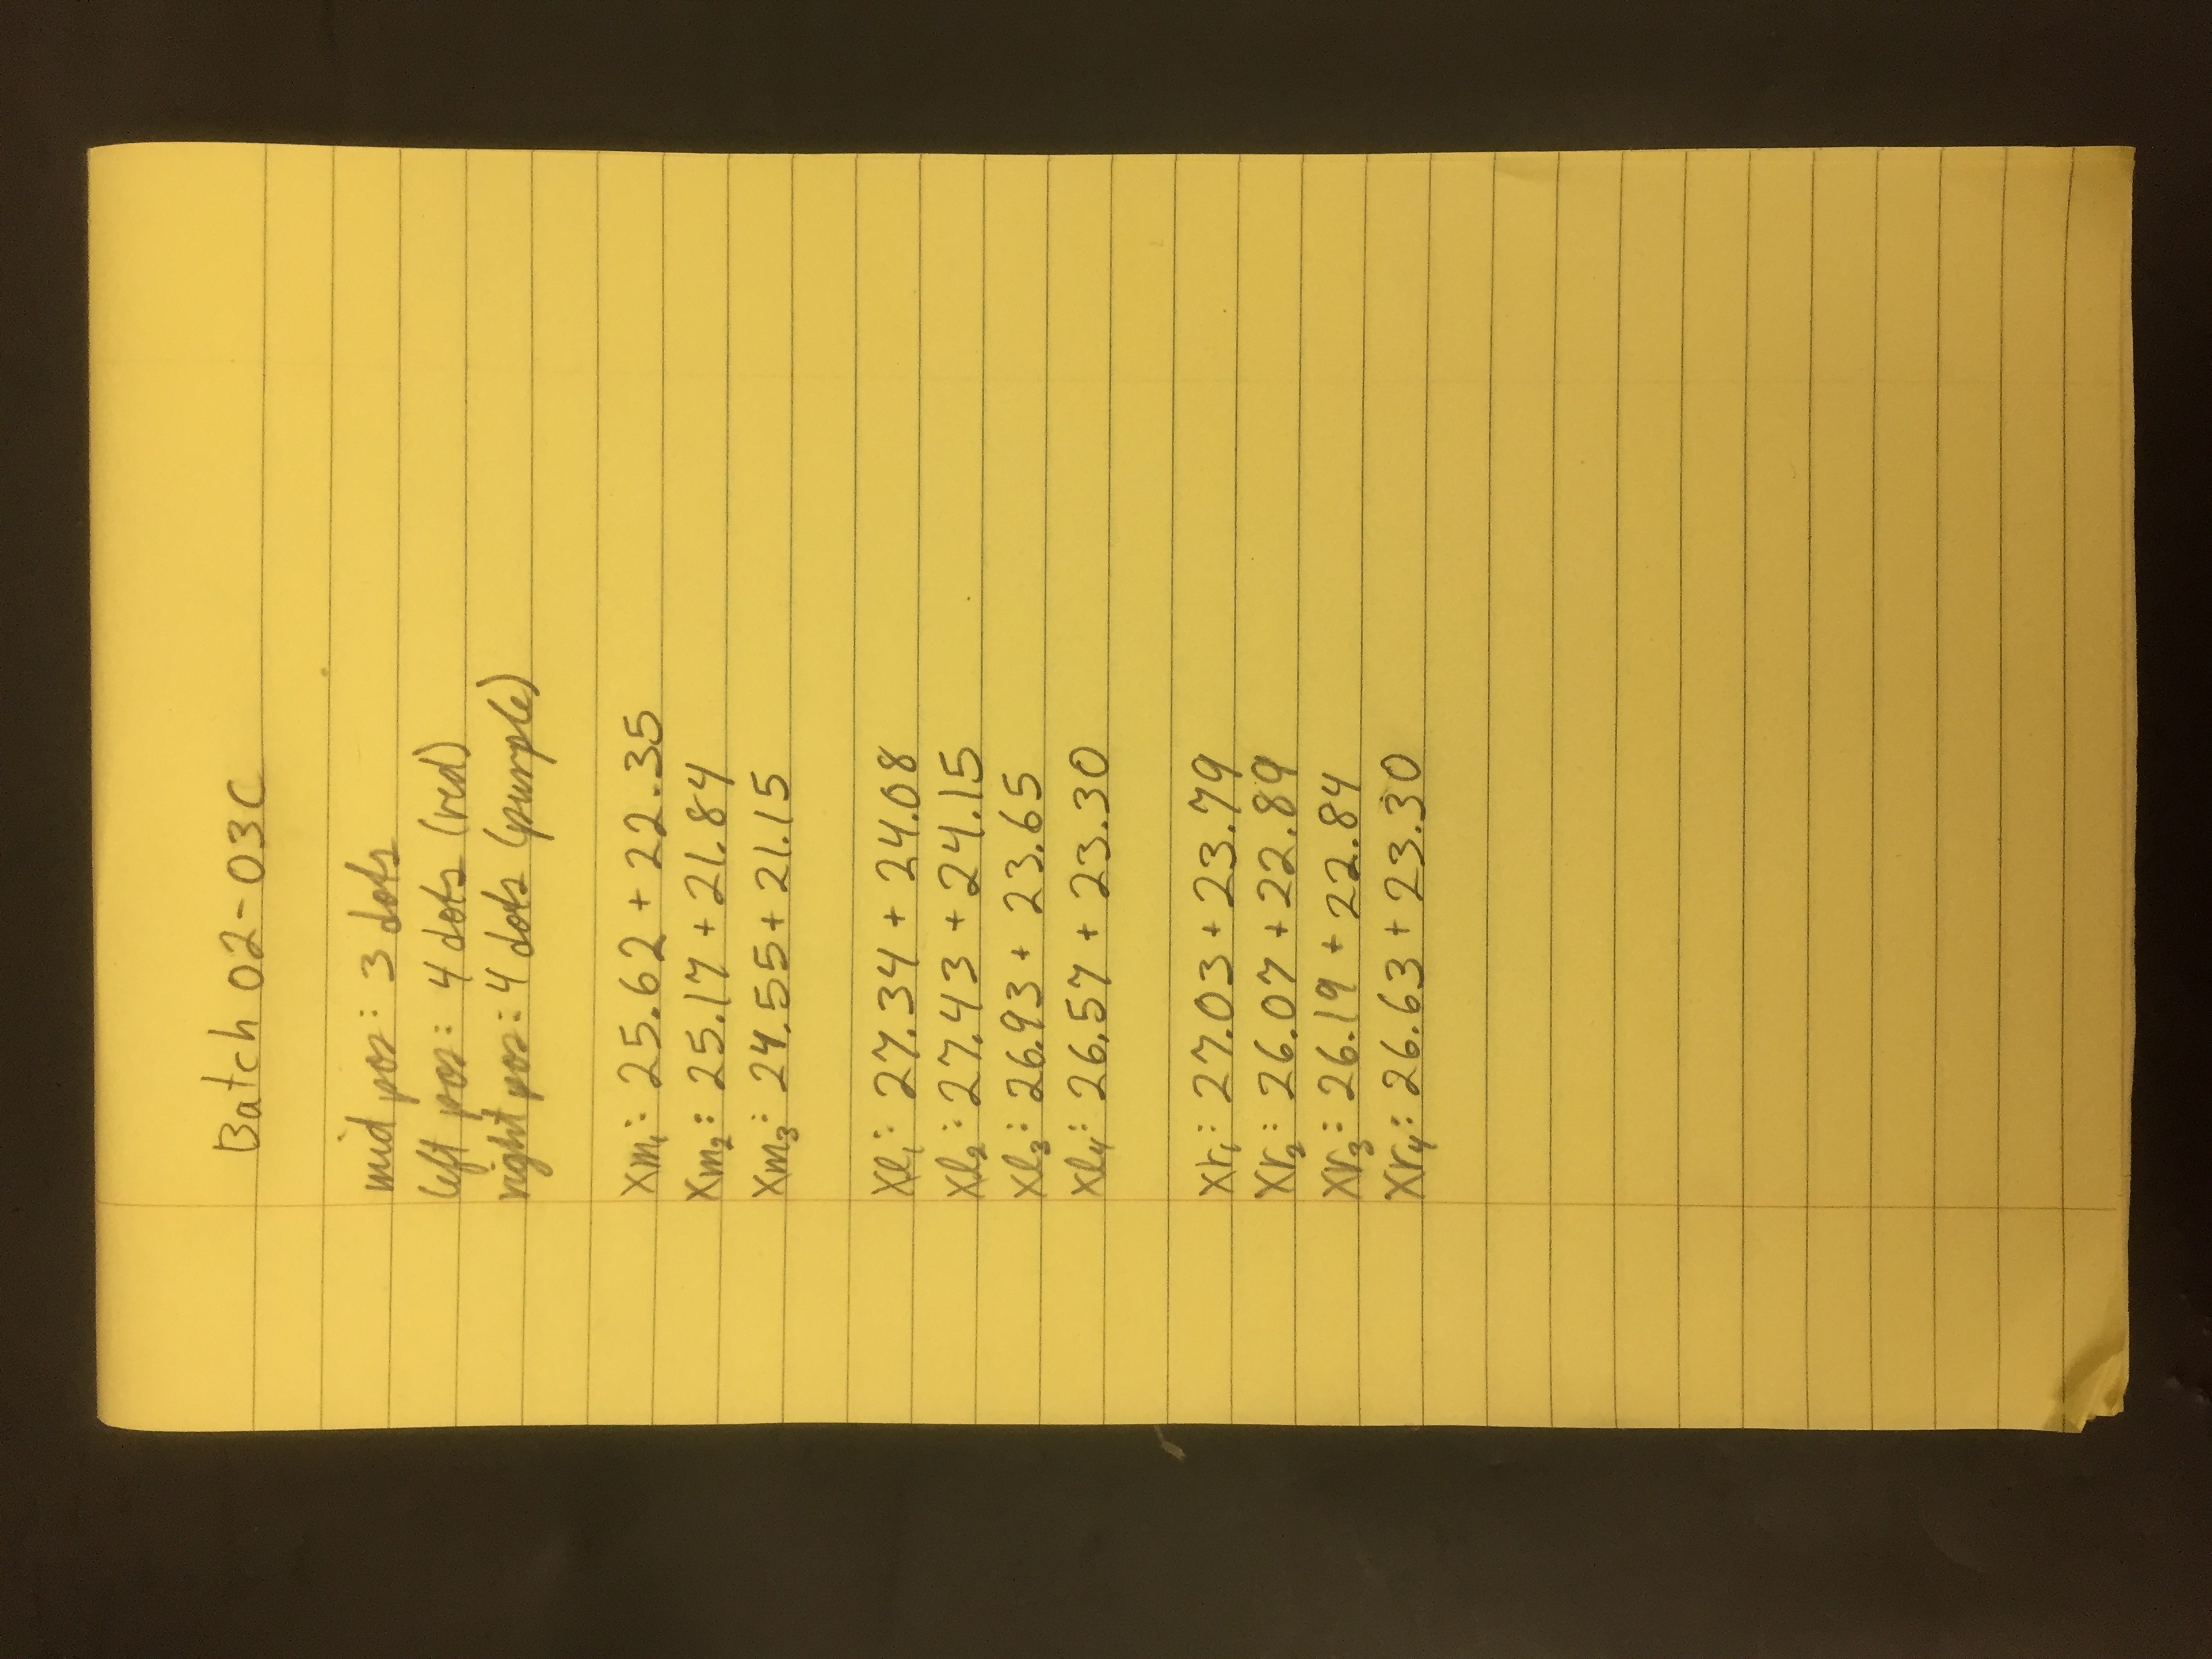 Batch 02-03C
mid pos: 3 dots
left pos: 4 dots (red)
right pos: 4 dots (purple)
Xm₁: 25.62 + 22.35
Xm₂: 25.17 + 21.84
Xm₃: 24.55 + 21.15
Xl₁: 27.34 + 24.08
Xl₂: 27.43 + 24.15
Xl₃: 26.93 + 23.65
Xl₄: 26.57 + 23.30
Xr₁: 27.03 + 23.79
Xr₂: 26.07 + 22.89
Xr₃: 26.19 + 22.84
Xr₄: 26.63 + 23.30